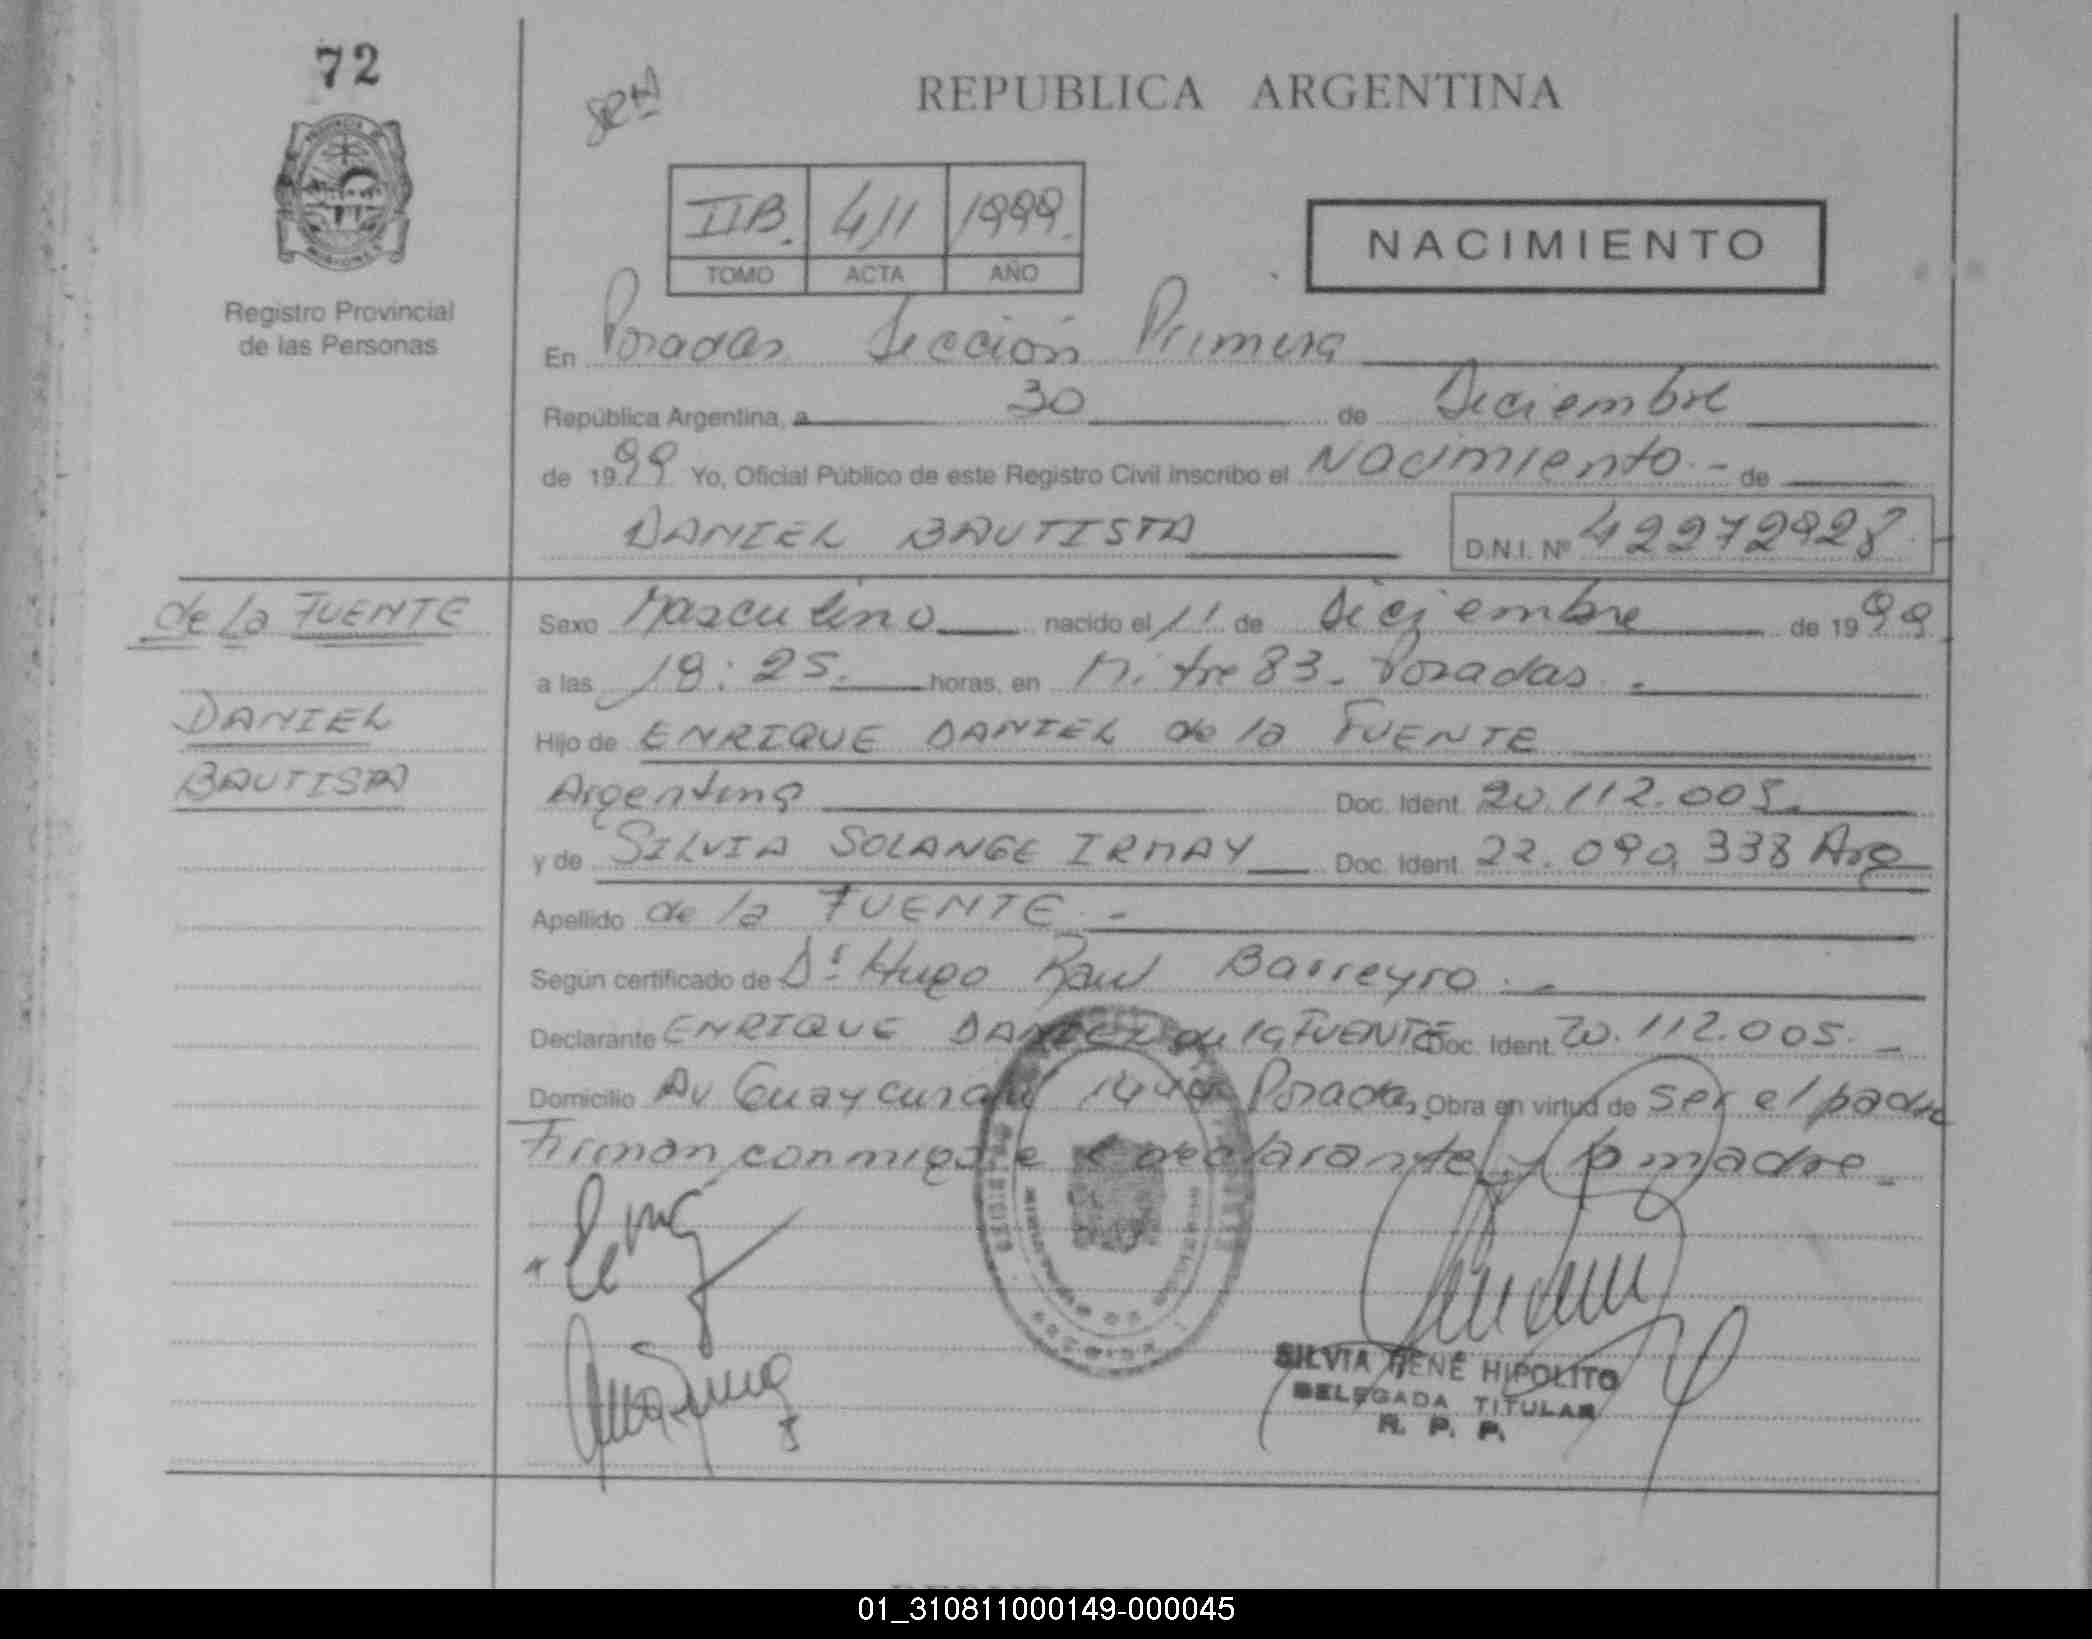 72
REPUBLICA ARGENTINA
IIB. 411 1999.
TOMO ACTA AÑO
NACIMIENTO
Registro Provincial
de las Personas
En Posadas Sección Primera
República Argentina, a 30 de Diciembre
de 1999 Yo, Oficial Público de este Registro Civil inscribo el Nacimiento.- de
DANIEL BAUTISTA D.N.I. Nº 42272928
de la FUENTE
DANIEL
BAUTISTA
Sexo Masculino nacido el 11 de Diciembre de 1999
a las 19:25. horas, en Mitre 83. Posadas.
Hijo de ENRIQUE DANIEL de la FUENTE
Argentina Doc. Ident. 20.112.005.
y de SILVIA SOLANGE IRMAY Doc. Ident. 22.090.338 Arg
Apellido de la FUENTE.-
Según certificado de Dr Hugo Raul Barreyro.-
Declarante ENRIQUE DANIEL de la FUENTE Doc. Ident. 20.112.005.-
Domicilio Av Guaycurari Posadas. Obra en virtud de ser el padre
Firman conmigo el declarante y la madre
SILVIA RENÉ HIPOLITO
DELEGADA TITULAR
R. P. P.
01_310811000149-000045